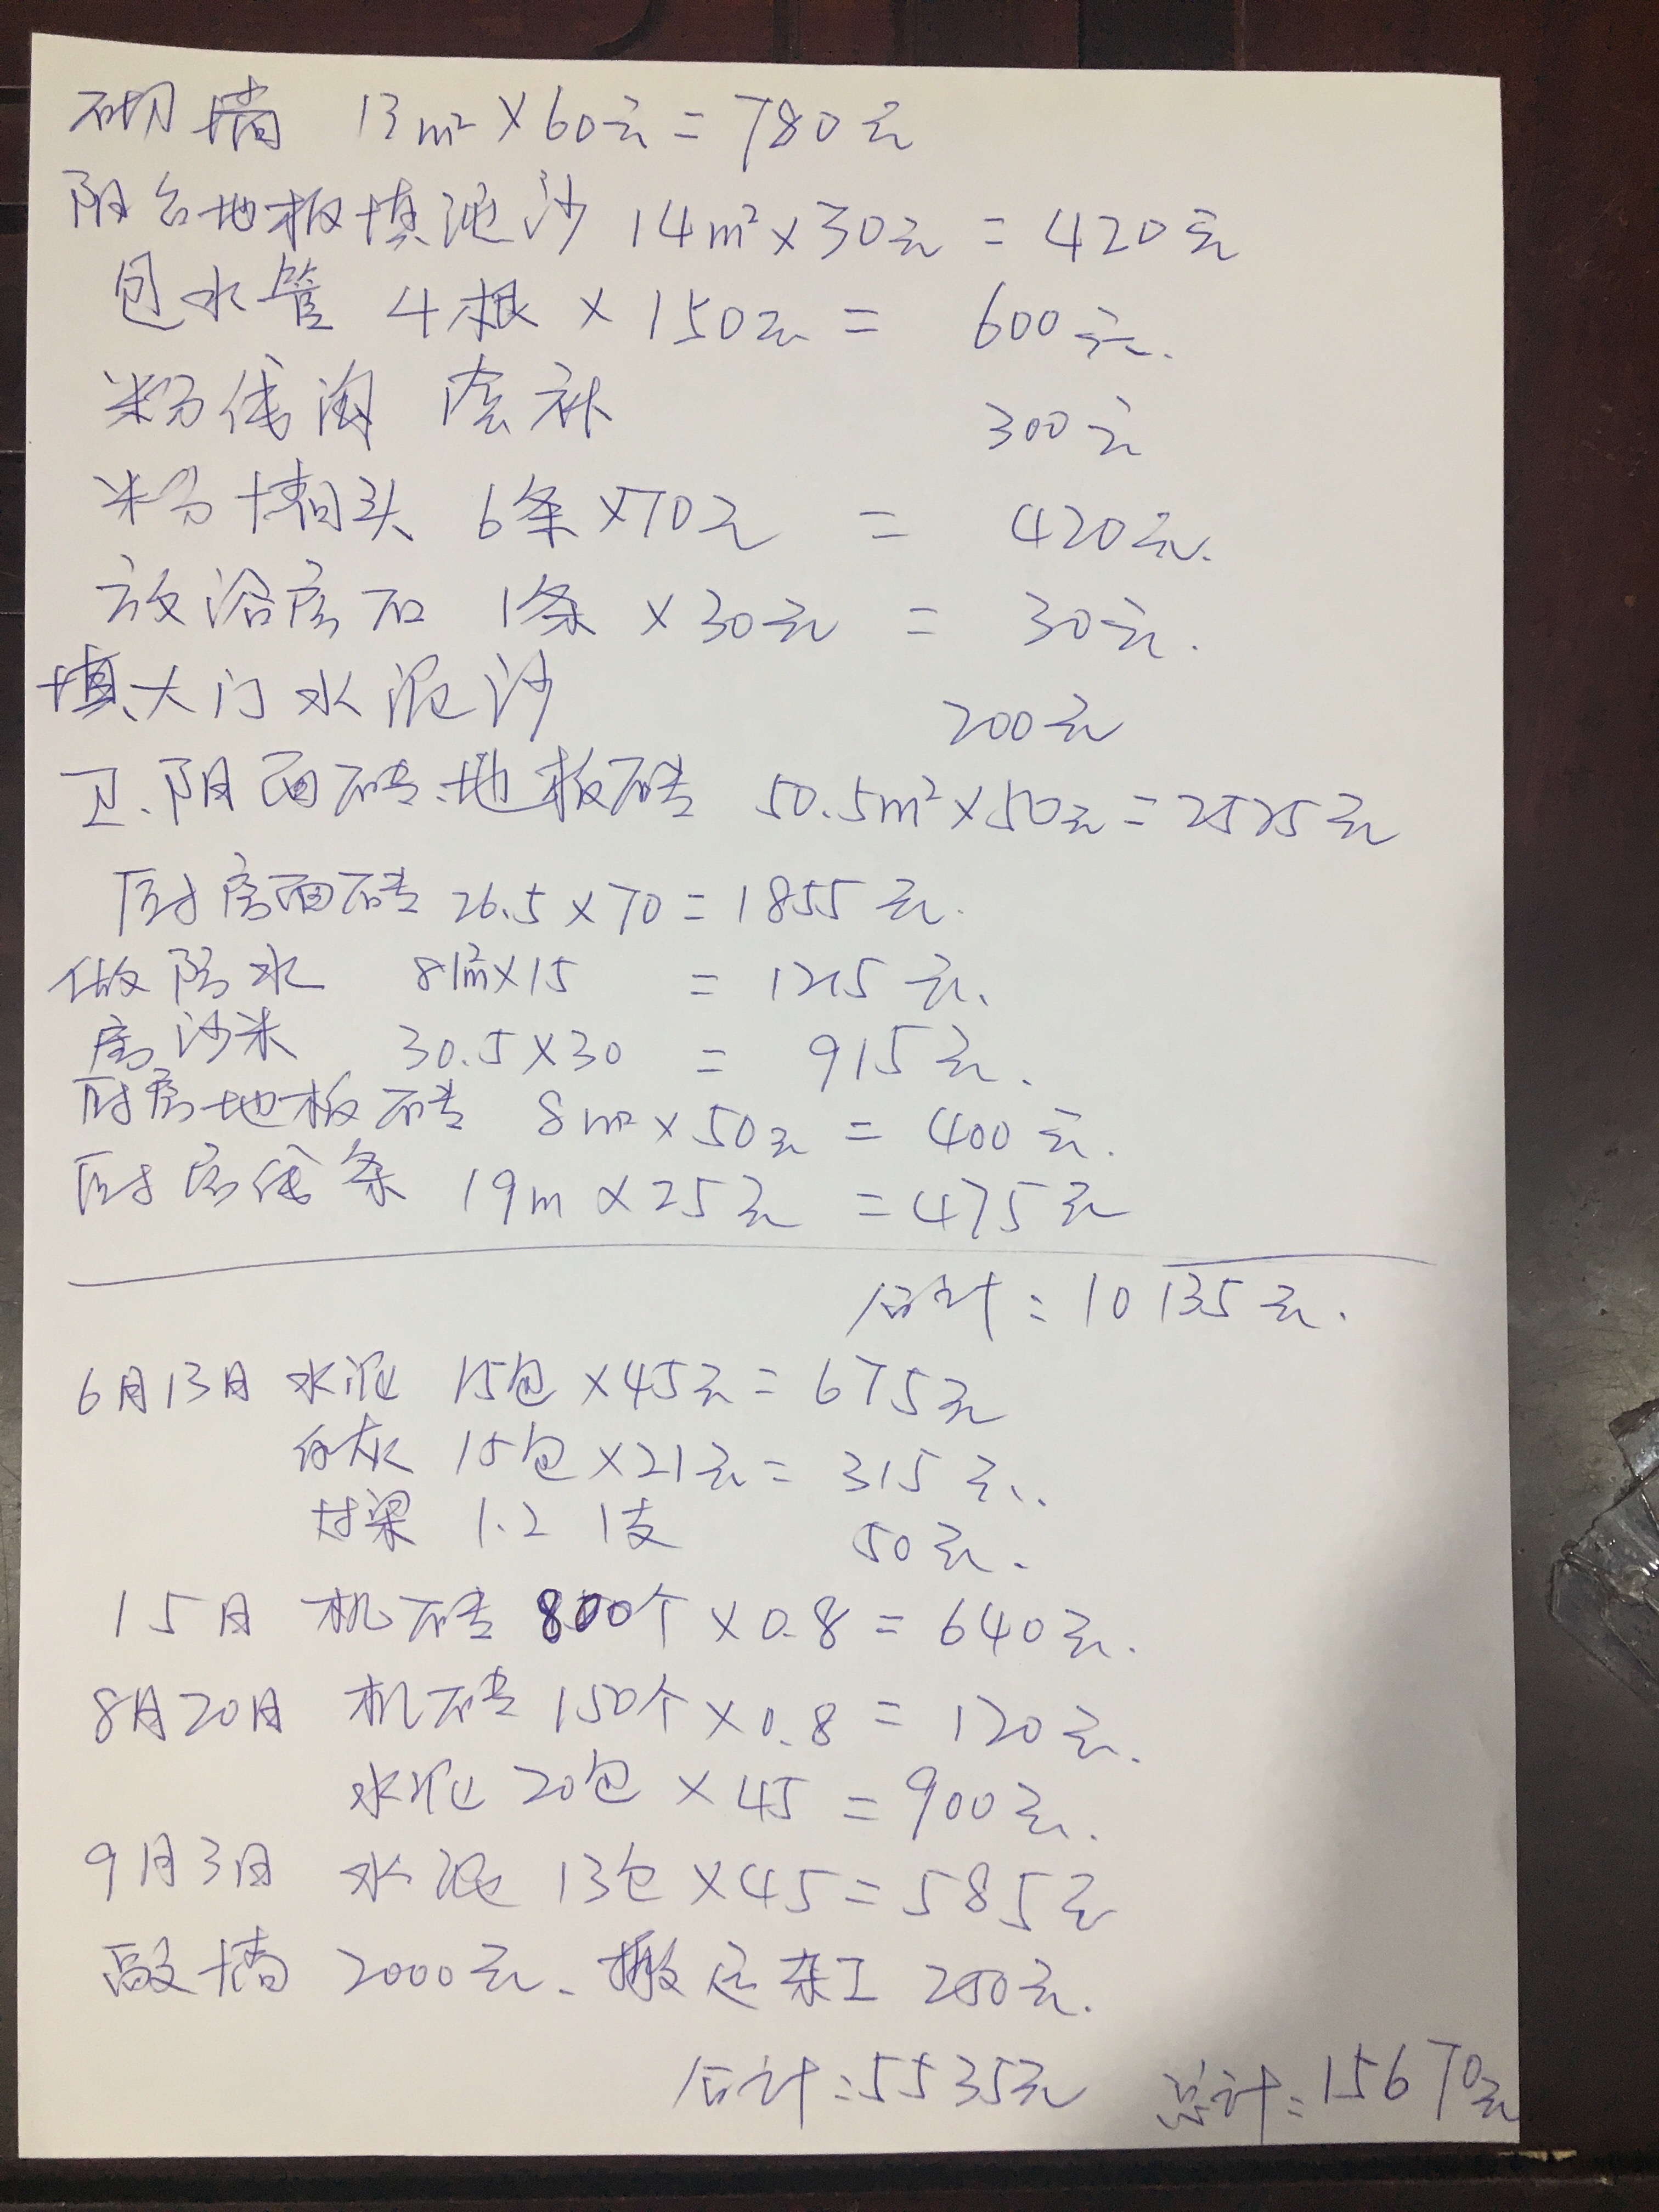 砌墙 13m²×60元=780元
阳台地板填泥沙 14m²×30元=420元
包水管 4根×150元= 600元.
粉线沟 补 300元
粉墙头 6条×70元 = 420元.
放浴房石 1条×30元 = 30元.
填大门水泥沙 200元
卫.阳面砖.地板砖 50.5m²×50元=2525元
厨房面砖 26.5×70=1855元.
做防水 81m²×15 = 1215元.
房沙米 30.5×30 = 915元.
厨房地板砖 8m²×50元=400元.
厨房线条 19m×25元=475元
合计:10135元.
6月13日 水泥 15包×45元=675元
白灰 15包×21元=315元.
过梁 1.2 1支 50元.
15日 机砖 800个×0.8=640元.
8月20日 机砖 150个×0.8=120元.
水泥 20包×45=900元.
9月3日 水泥 13包×45=585元
敲墙 2000元.搬运杂工 250元.
合计:5535元 总计:15670元